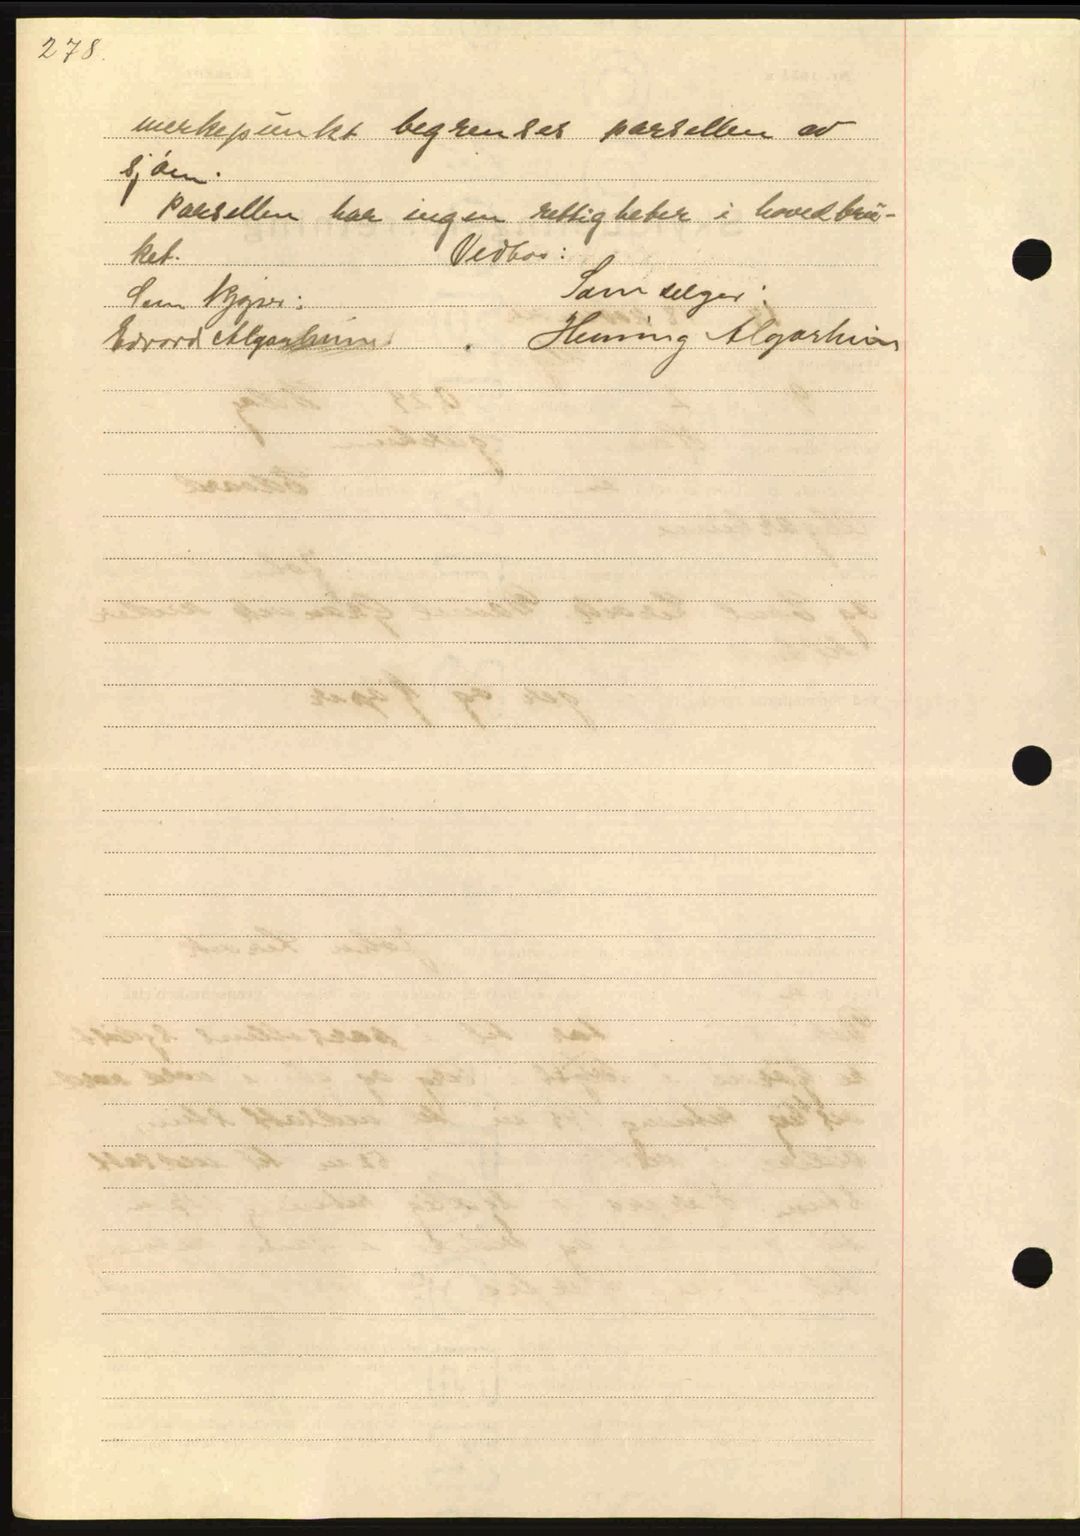 278.
merkepunkt begrenses parsellen av
sjøen.
Parsellen har ingen rettigheter i hovedbru-
ket. Vedtas:
Som kjøper: Som selger:
Edvard Algarheim. Henning Algarheim